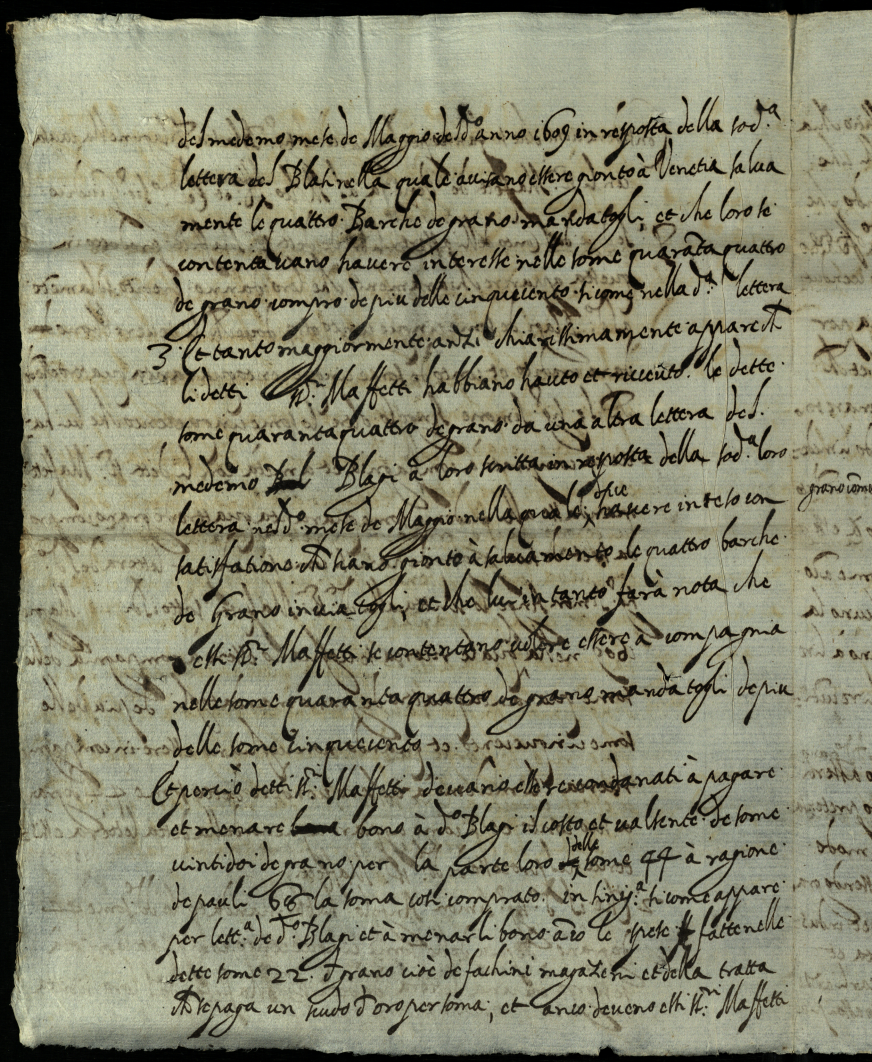 del medemo mese de Maggio del d.º anno 1609 in resposta della sod.ª
lettera del Blasi nella quale avisano essere gionto à Venetia salva
mente le quattro Barche de grano mandatogli, et che loro se
contentavano havere interesse nelle some quaranta quattro
de grano compro de più delle cinquecento sicome nella d.ª lettera
3 Et tanto maggiormente anzi chiarissimamente appare ch
li detti SS.ri Maffetti habbiano hauto et riceuto le dette
some quaranta quattro de grano da una altra lettera del
medemo Blagi a loro scritta in resposta della sod.ª loro
lettera nel d.º mese de Maggio nella quale dice havere inteso con
satisfatione ch siano gionto à salvamento le quattro barche
de Grano inviatogli, et che lui in tanto farà nota che
essi SS.ri Maffetti se contentano volere essere a compagnia
nelle some quaranta quattro de grano mandatogli de più
delle some cinquecento
Et perciò detti SS.ri Maffetti devano essere condanati à pagare
et menare bono à d.º Blagi il costo et valsente de some
vintidoi de grano per la parte loro delle some 44 à ragione
de pauli 66 la soma così comprato in Sinig.ª sicome appare
per lett.ª de d.º Blagi et à menarli bono anco le spese fatte nelle
dette some 22 grano cioè de fachini magazeni et della tratta
ch se paga un scudo d'oro per soma, et anco deveno essi SS.ri Maffetti
grano com